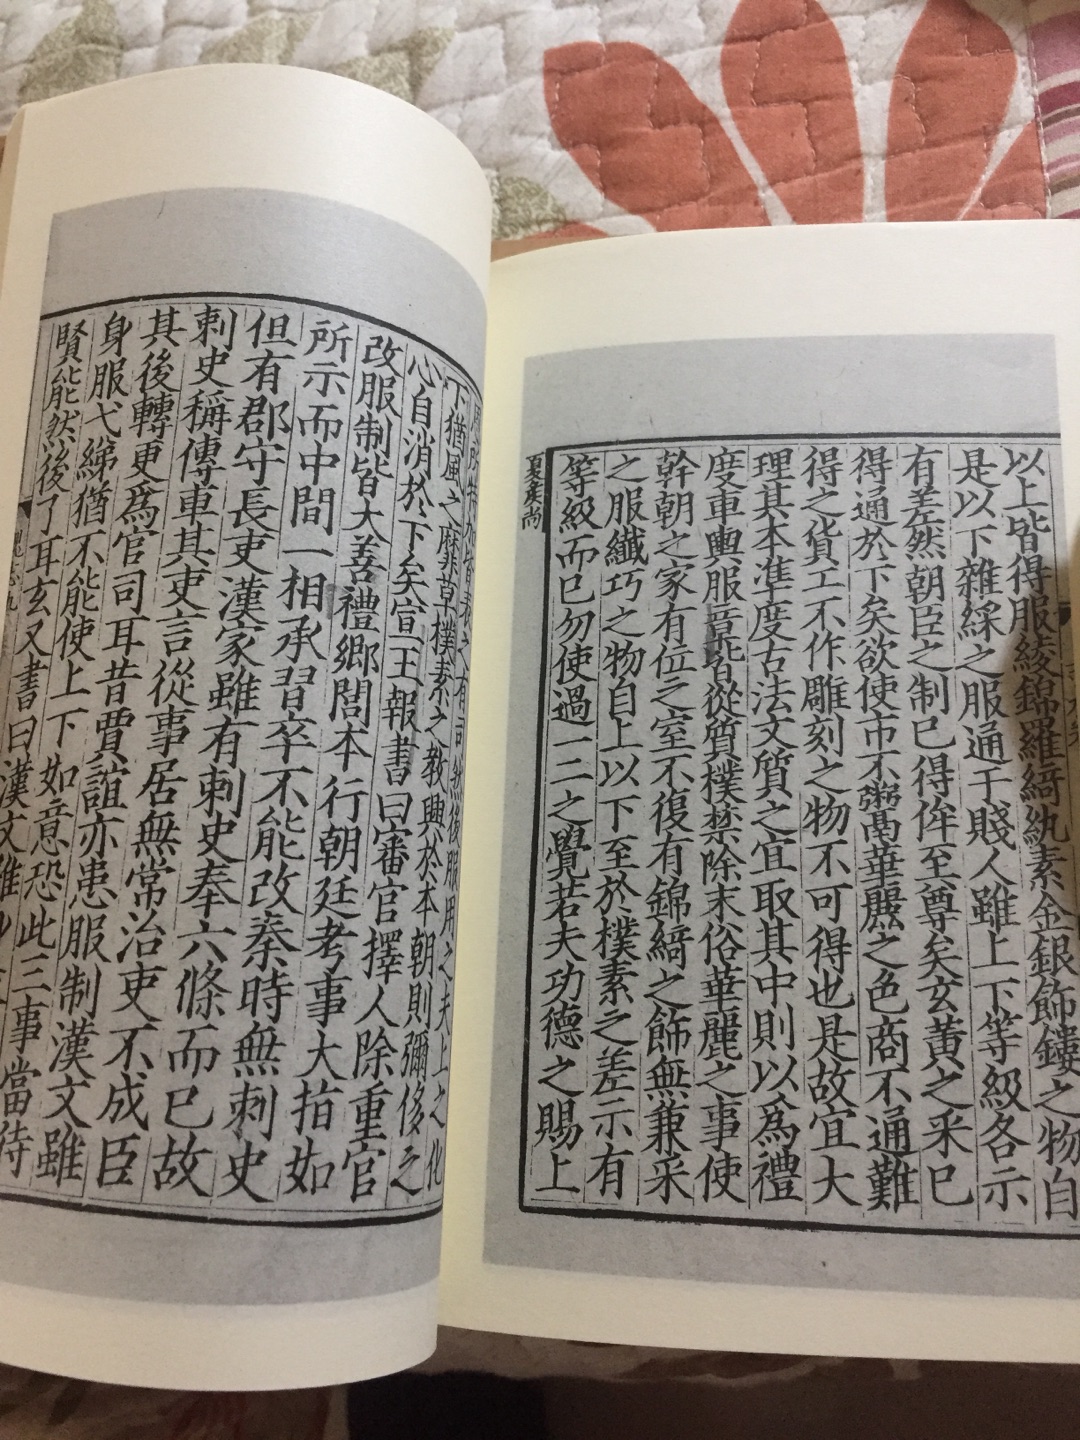 以上皆得服綾錦羅綺紈素金銀飾鏤之物自
是以下雜綵之服通于賤人雖上下等級各示
有差然朝臣之制已得侔至尊矣玄黃之采已
得通於下矣欲使市不鬻華麗之色商不通難
得之貨工不作雕刻之物不可得也是故宜大
理其本準度古法文質之宜取其中則以爲禮
度車輿服章皆從質樸禁除末俗華麗之事使
幹朝之家有位之室不復有錦綺之飾無兼采
之服纖巧之物自上以下至於樸素之差示有
等級而已勿使過一二之覺若夫功德之賜上
夏侯尚
恩所特加皆表之有司然後服用之夫上之化
下猶風之靡草樸素之教興於本朝則彌侈之
心自消於下矣宣王報書曰審官擇人除重官
改服制皆大善禮鄉閭本行朝廷考事大指如
所示而中間一相承習卒不能改秦時無刺史
但有郡守長吏漢家雖有刺史奉六條而已故
刺史稱傳車其吏言從事居無常治吏不成臣
其後轉更爲官司耳昔賈誼亦患服制漢文雖
身服弋綈猶不能使上下如意恐此三事當待
賢能然後了耳玄又書曰漢文雖